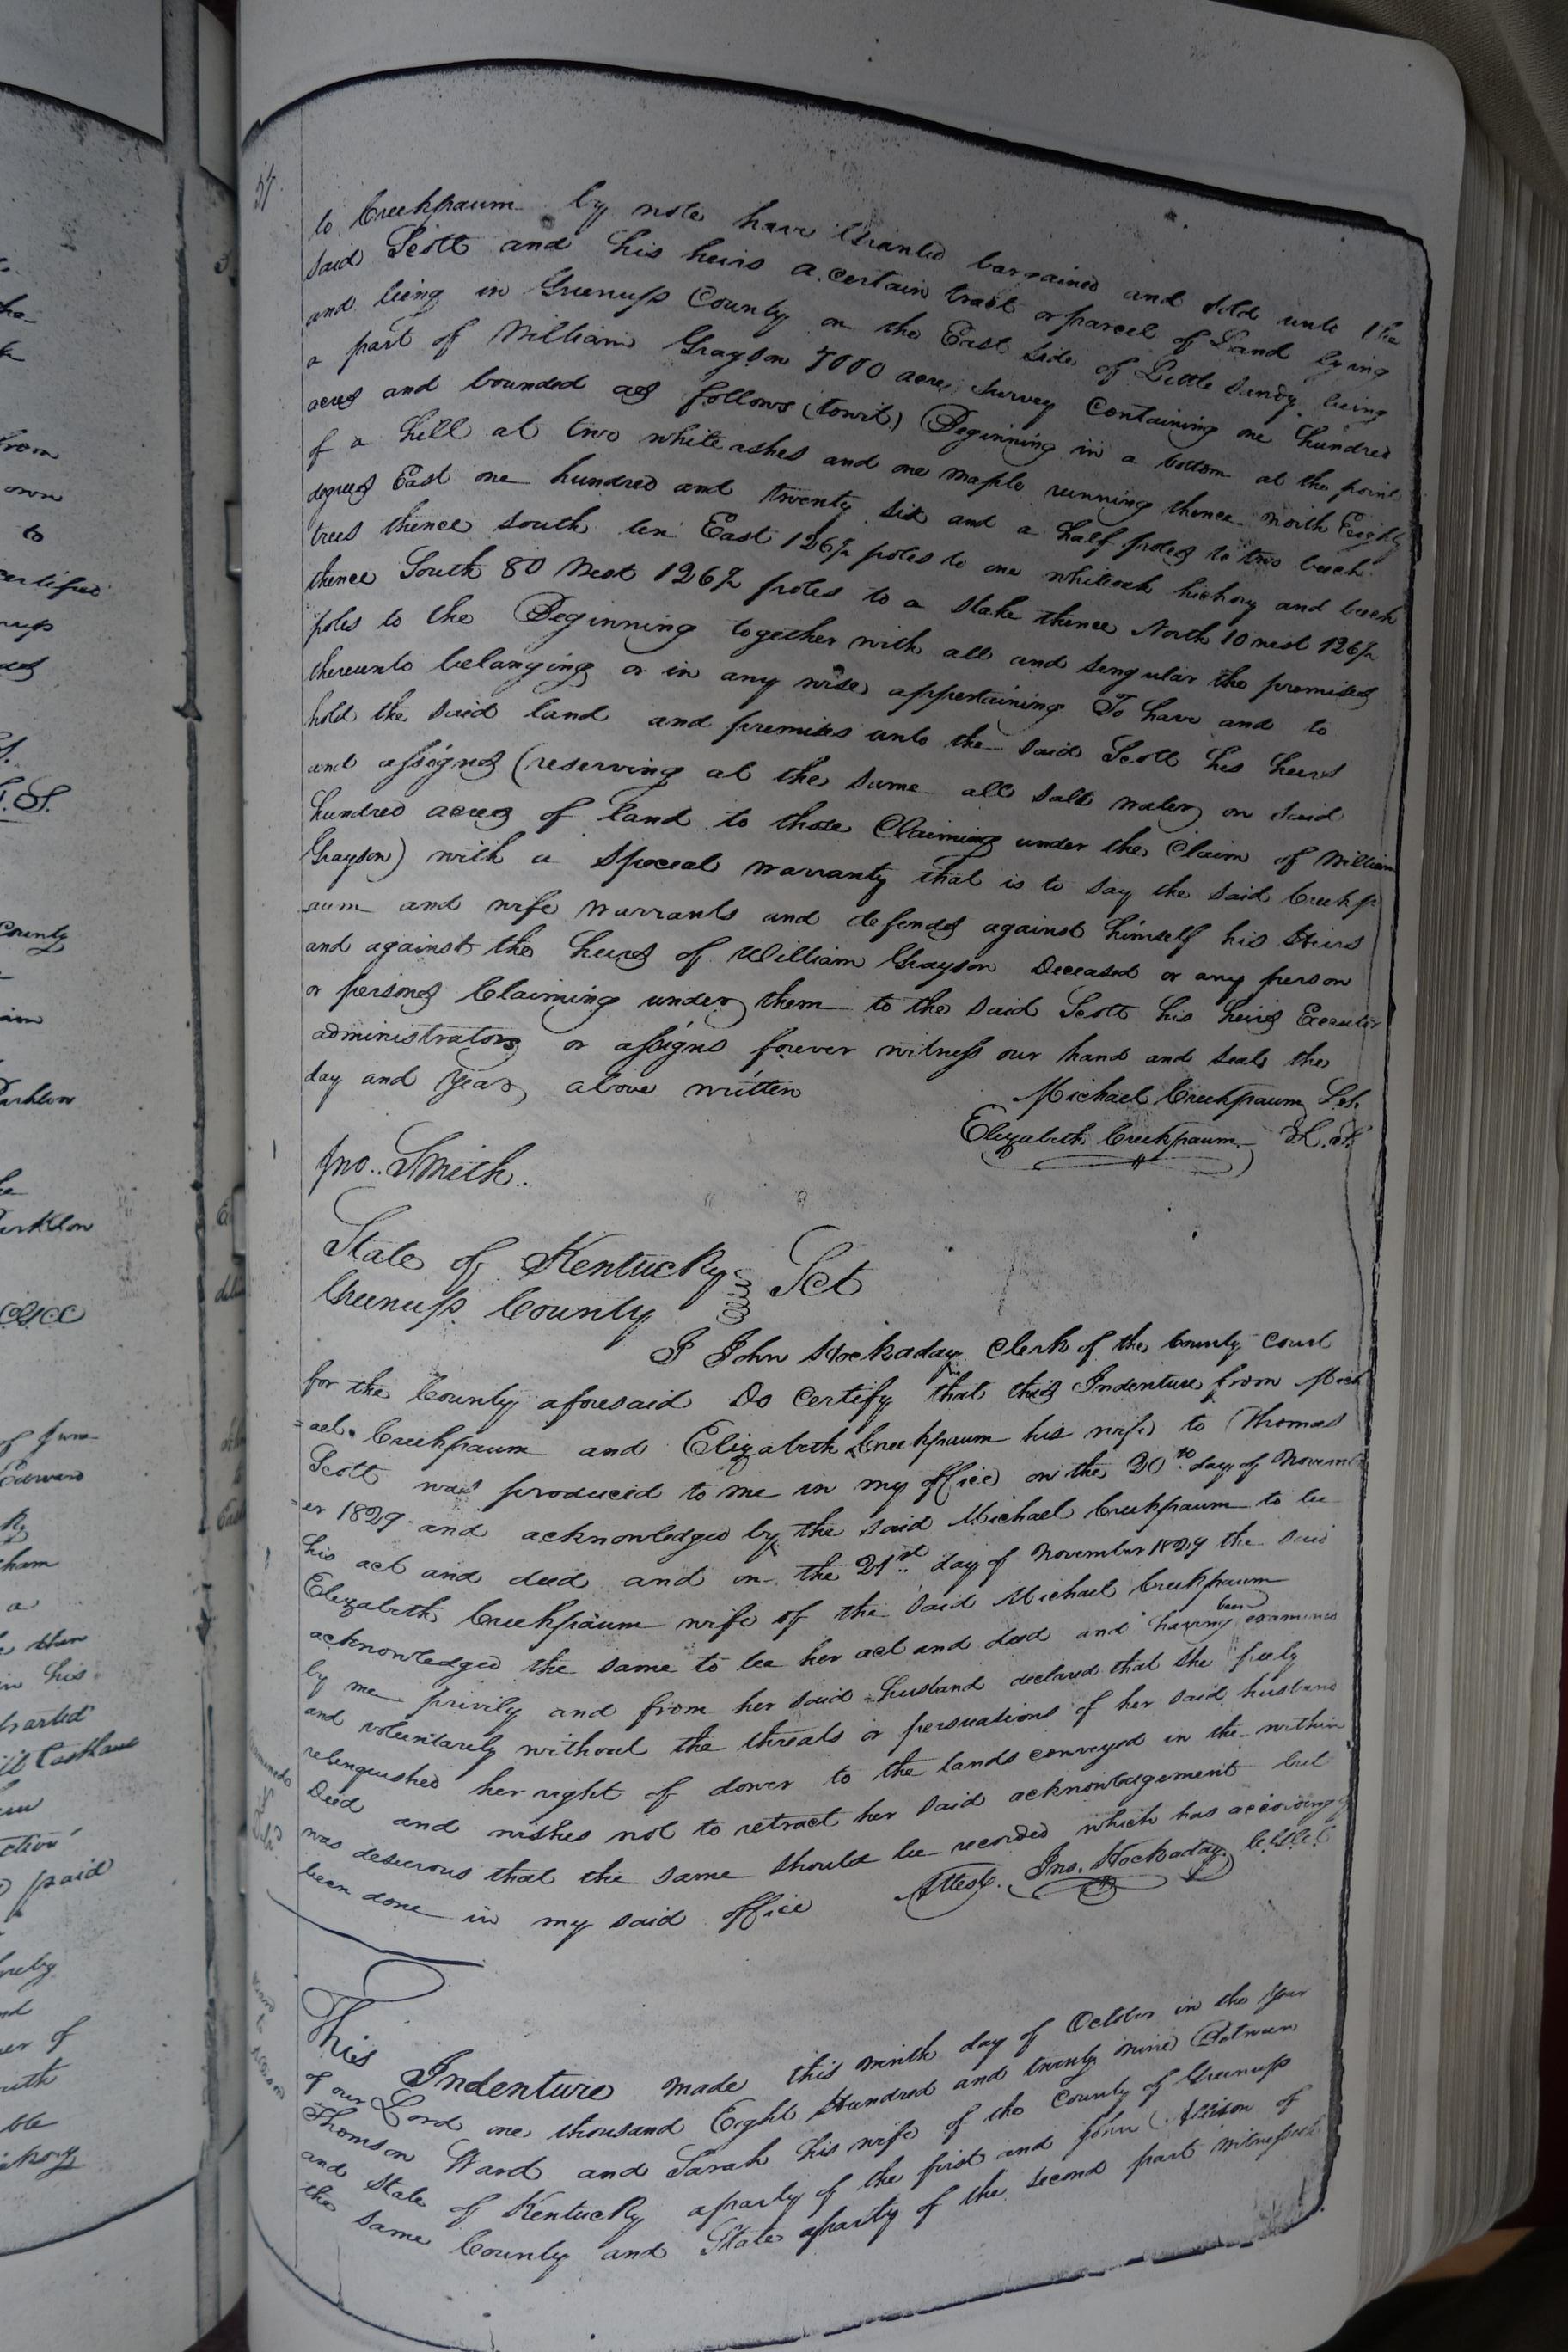 57.
to Creekpaum by note have Granted bargained and sold unto the
said Scott and his heirs a certain tract or parcel of Land lying
and being in Greenup County on the East side of Little Sandy being
a part of William Grayson 7000 acres survey containing one hundred
acres and bounded as follows (towit) Beginning in a bottom at the point
of a hill at two white ashes and one maple running thence north Eighty
degrees East one hundred and twenty six and a half poles to two beech
trees thence south ten East 126½ poles to one whiteoak hickory and beech
thence South 80 West 126½ poles to a stake thence North 10 west 126½
poles to the Beginning together with all and singular the premises
thereunto belonging or in any wise appertaining To have and to
hold the said land and premises unto the said Scott his heirs
and assigns (reserving at the same all salt water on said
hundred acres of land to those Claiming under the Claim of William
Grayson) with a special warranty that is to say the said Creekp
aum and wife warrants and defends against himself his Heirs
and against the heirs of William Grayson Deceased or any person
or persons Claiming under them to the said Scott his heirs Executor
administrators or assigns forever witness our hand and seals the
day and year above written
Michael Creekpaum L.S.
Elizabeth Creekpaum L.S.
Jno. Smith.
State of Kentucky
Greenup County Sct
I John Hockaday Clerk of the County Court
for the County aforesaid Do certify that this Indenture from Mich
=ael Creekpaum and Elizabeth Creekpaum his wife to Thomas
Scott was produced to me in my office on the 20th day of Novemb
=er 1829 and acknowledged by the said Michael Creekpaum to be
his act and deed and on the 21st day of November 1829 the said
Elizabeth Creekpaum wife of the said Michael Creekpaum
acknowledged the same to be her act and deed and having been examined
by me privily and from her said husband declared that she freely
and voluntarily without the threats or persuations of her said husband
relinquished her right of dower to the lands conveyed in the within
Deed and wishes not to retract her said acknowledgement but
was desurous that the same should be recorded which has accordingly
been done in my said office Attest. Jno. Hockaday C.G.C.C.
This Indenture made this ninth day of October in the year
of our Lord one thousand Eight Hundred and twenty nine Between
Thomson Ward and Sarah his wife of the County of Greenup
and State of Kentucky aparty of the first and John Allison of
the same County and State aparty of the second part witnesseth